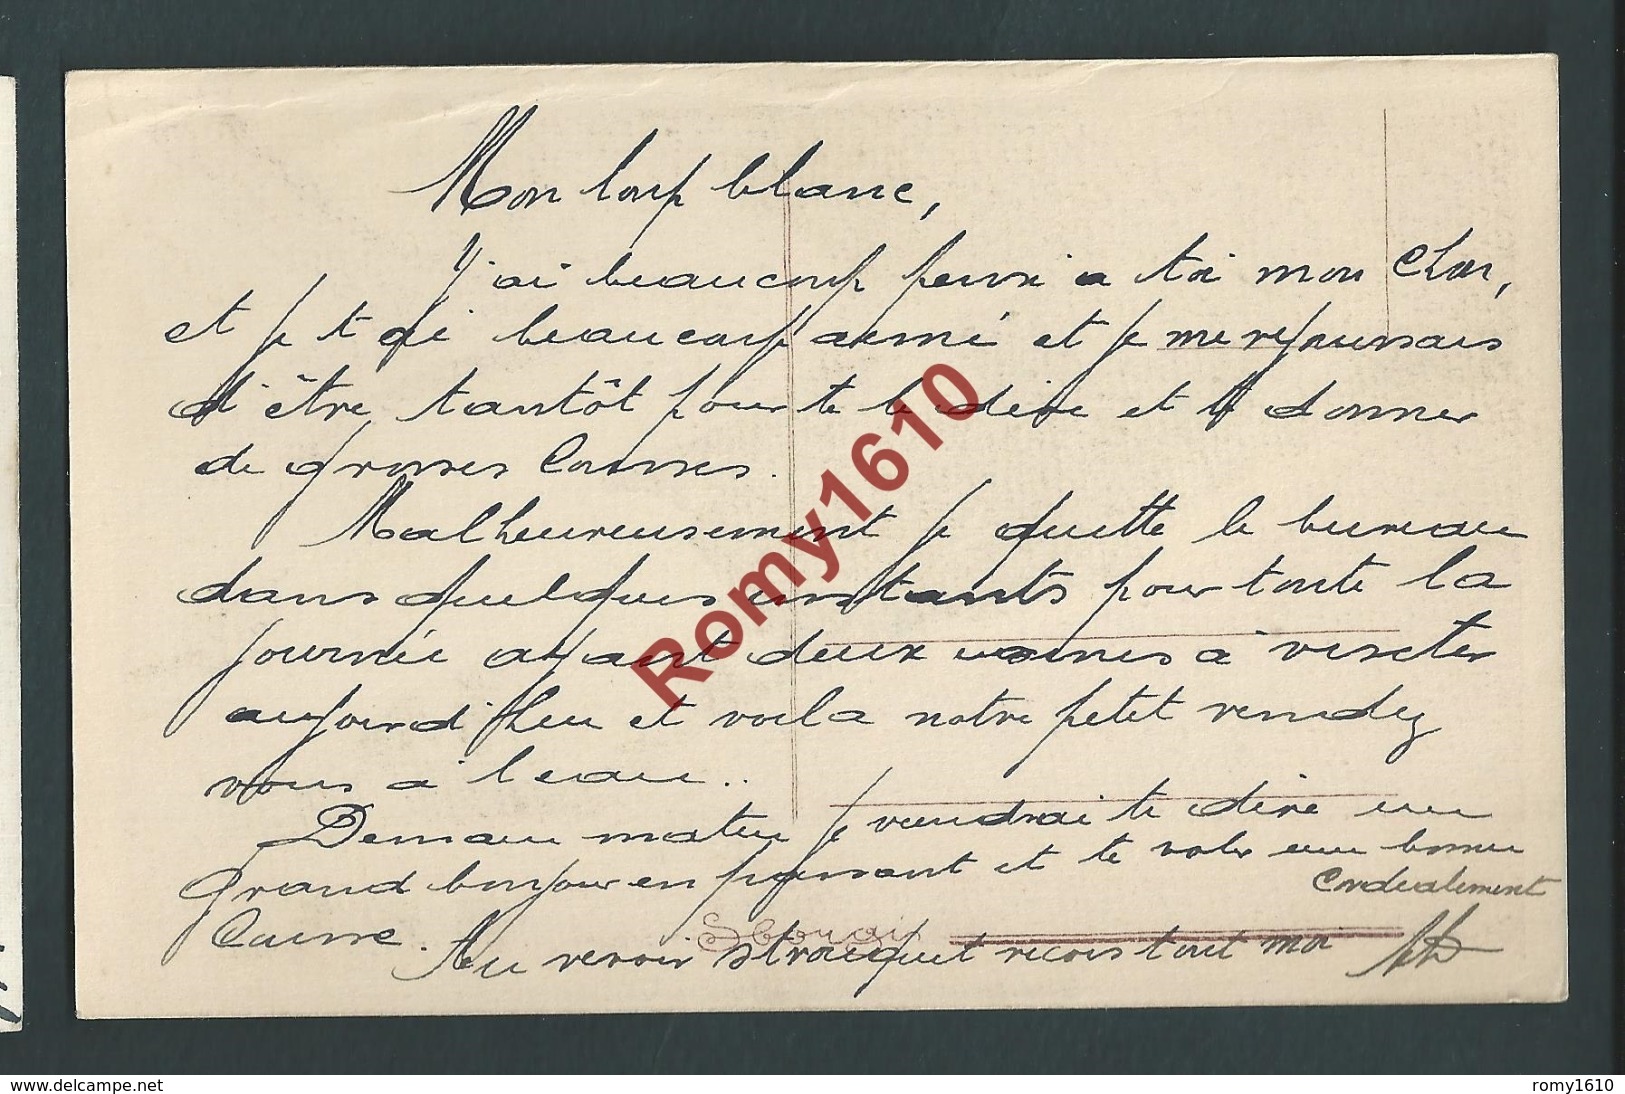 Mon loup blanc,
J'ai beaucoup pensé a toi mon cher,
et je t'ai beaucoup aimé et je me rejouissais
d'être tantôt pour te le dire et te donner
de grosses
Malheureusement je quitte le bureau
dans quelques instants pour toute la
journée ayant deux usines à visiter
aujourd'hui et voila notre petit rendez
vous à l'eau..
Demain matin je viendrai te dire un
grand bonjour en passant et te voler une bonne
Cordialement
Au revoir et reçois tout moi
Romy1610
www.delcampe.net
romy1610